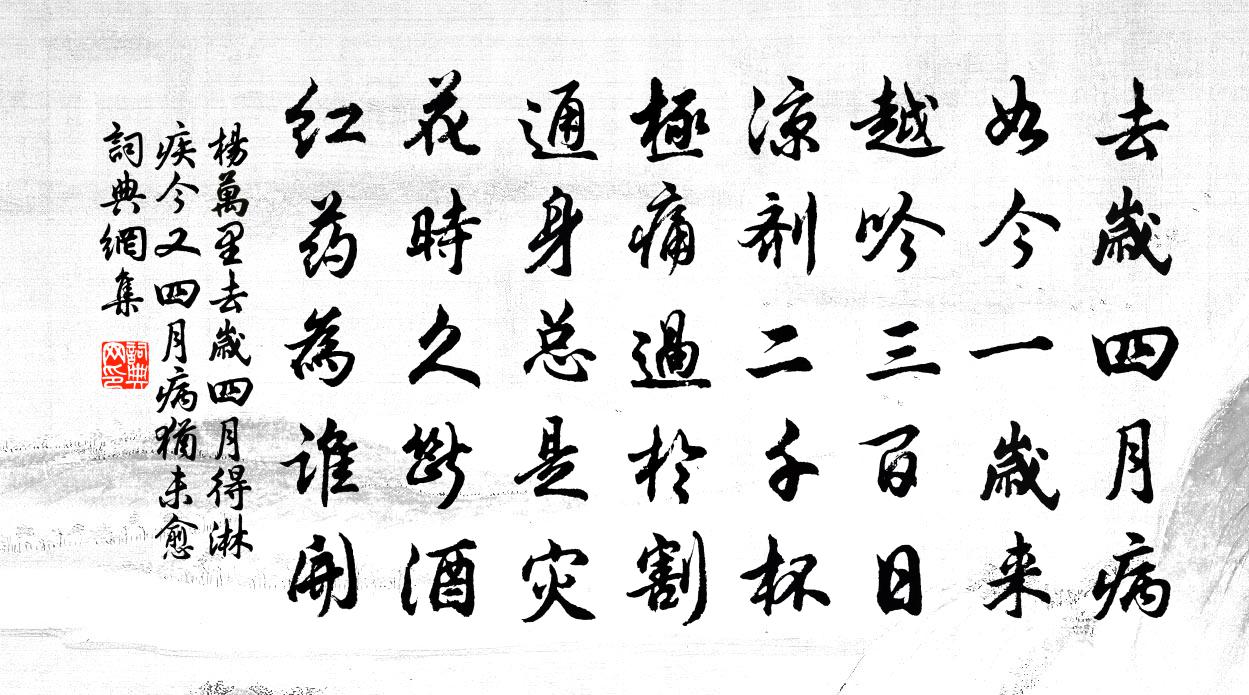 去歳四月病
如今一歳来
越吟三百日
凉剂二千杯
極痛過於割
通身总是灾
花時久断酒
红药為谁開
楊萬里去歳四月得淋
疾今又四月病猶未愈
詞典網集
詞典网印